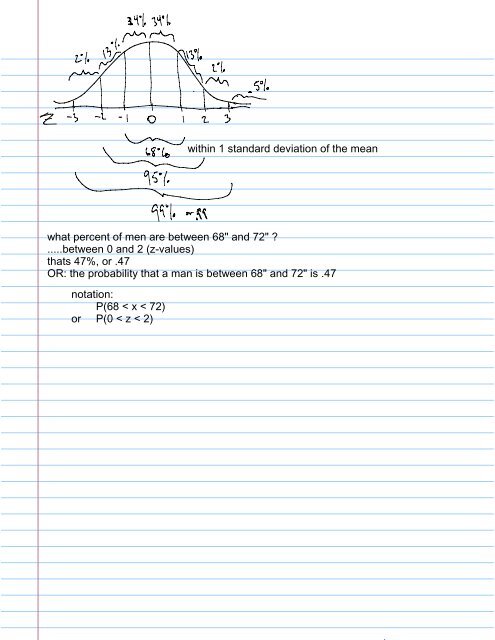 34% 34%
2% 13% 13% 2% .5%
Z -3 -2 -1 0 1 2 3
68% within 1 standard deviation of the mean
95%
99% or .99
what percent of men are between 68" and 72" ?
.....between 0 and 2 (z-values)
thats 47%, or .47
OR: the probability that a man is between 68" and 72" is .47
notation:
P(68 < x < 72)
or P(0 < z < 2)